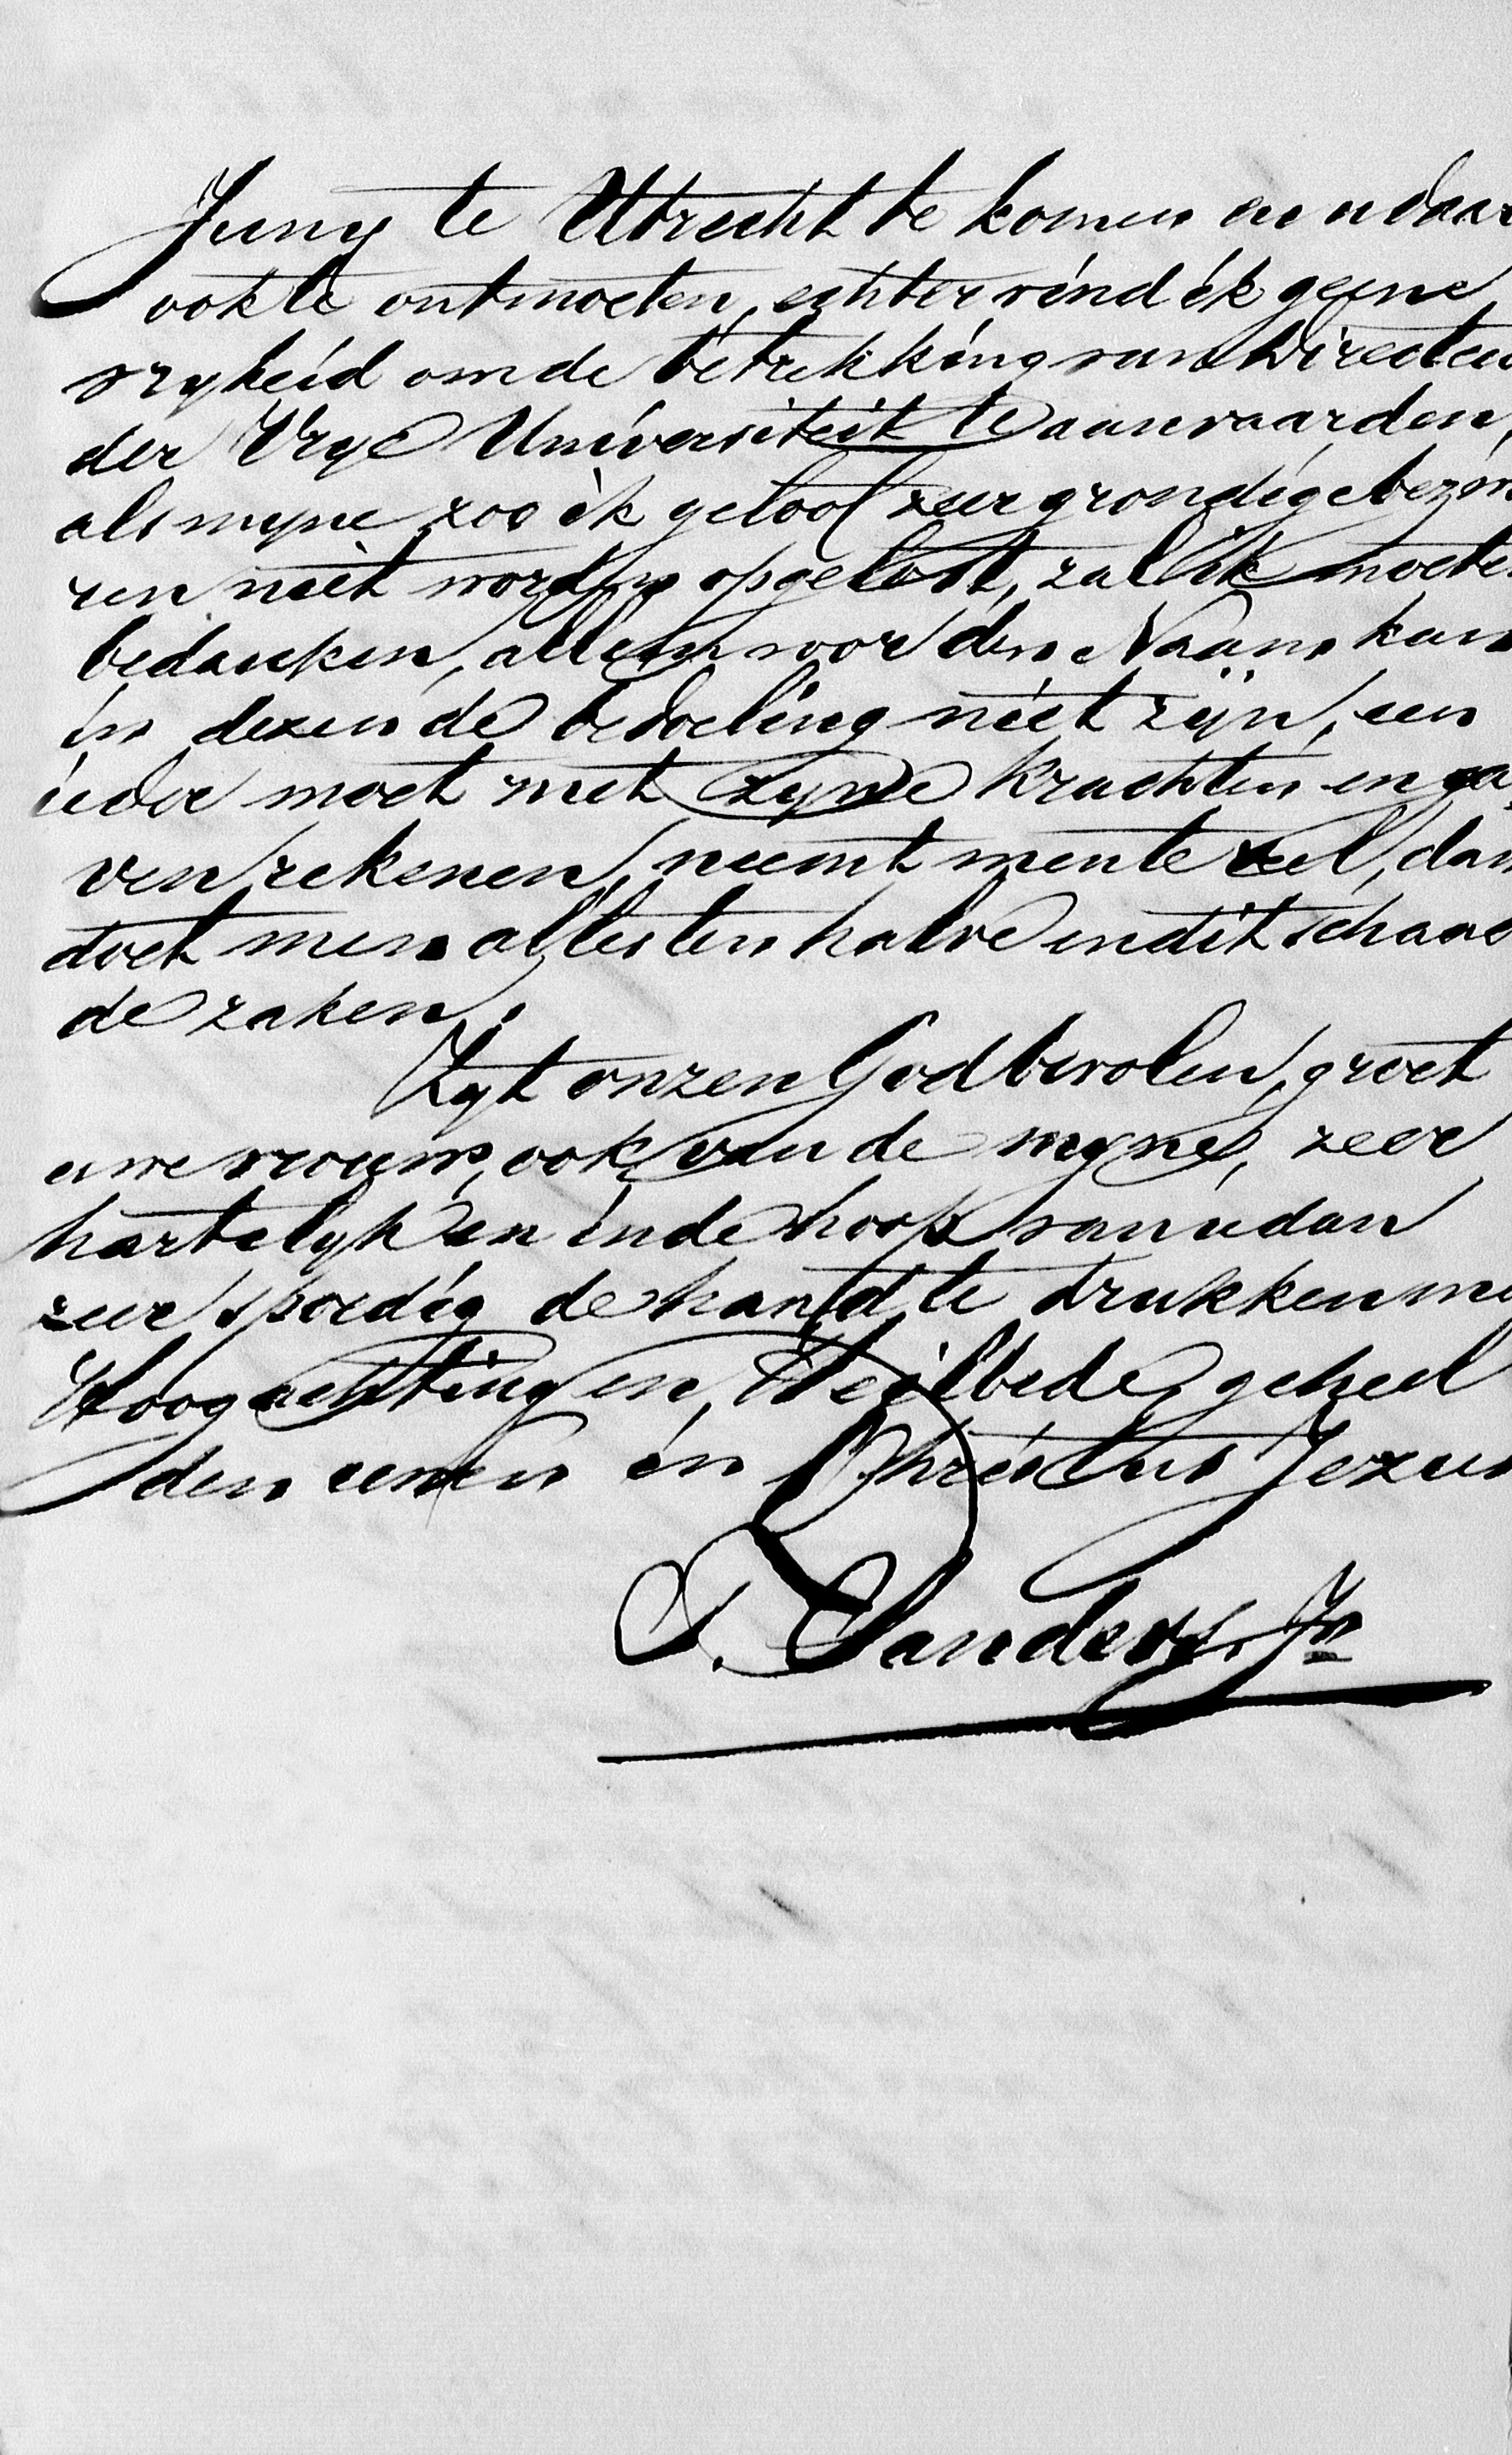 Juny te Utrecht te komen en u daar
ook te ontmoeten, echter vind ik geene
vryheid om de betrekking van Directeu
der Vrye Universiteit te aanvaarden,
als myne zoo ik geloof zeer grondige bezwa
ren niet worden opgelost, zal ik moeten
bedanken, alleen voor den Naam kan
in dezen de bedoeling niet zijn, een
ieder moet met zyne krachten en ga
ven rekenen, neemt men te veel, dan
doet men alles ten halve en dit schaad
de zaken.
Zyt onzen God bevolen, groet
uwe vrouw, ook van de myne, zeer
hartelyk en in de hoop van u dan
zeer spoedig de hand te drukken me
Hoogachting en Heilbede, geheel
den uwen in Christus Jezus
S. Sanders. Jn